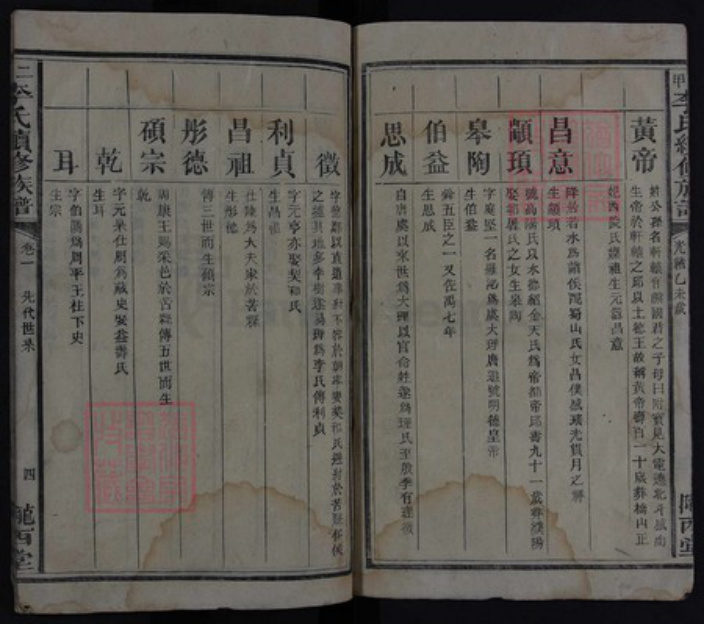 李氏續修族譜
光緒乙未歲
隴西堂
黃帝
姓公孫名軒轅有熊國君之子母曰附寶見大電遶北斗感而
生帝於軒轅之邱以土德王故稱黃帝壽百一十歲葬橋山正
妃西陵氏嫘祖生元囂昌意
昌意
降居若水為諸侯配蜀山氏女昌僕感瑤光貫月之祥
生顓頊
顓頊
號高陽氏以水德紹金天氏為帝都帝邱壽九十一歲葬濮陽
娶鄒屠氏之女生皋陶
皋陶
字庭堅一名繇為虞大理唐追號明德皇帝
生伯益
伯益
舜五臣之一又佐禹七年
生思成
思成
自唐虞以來世為大理以官命姓遂為理氏至殷季有理徵
徵
字德靈以直道事紂不容於朝卒娶契和氏
之墟其地多李樹遂易理為李氏傳利貞
利貞
字元亨亦娶契和氏
生昌祖
昌祖
仕陳為大夫家於苦縣
生彤德
彤德
傳三世而生碩宗
碩宗
周康王賜采邑於苦縣傳五世而生
乾
乾
字元杲仕周為藏史娶益壽氏
生耳
耳
字伯陽為周平王柱下史
生宗
李氏續修族譜
卷一
先代世系
四
隴西堂